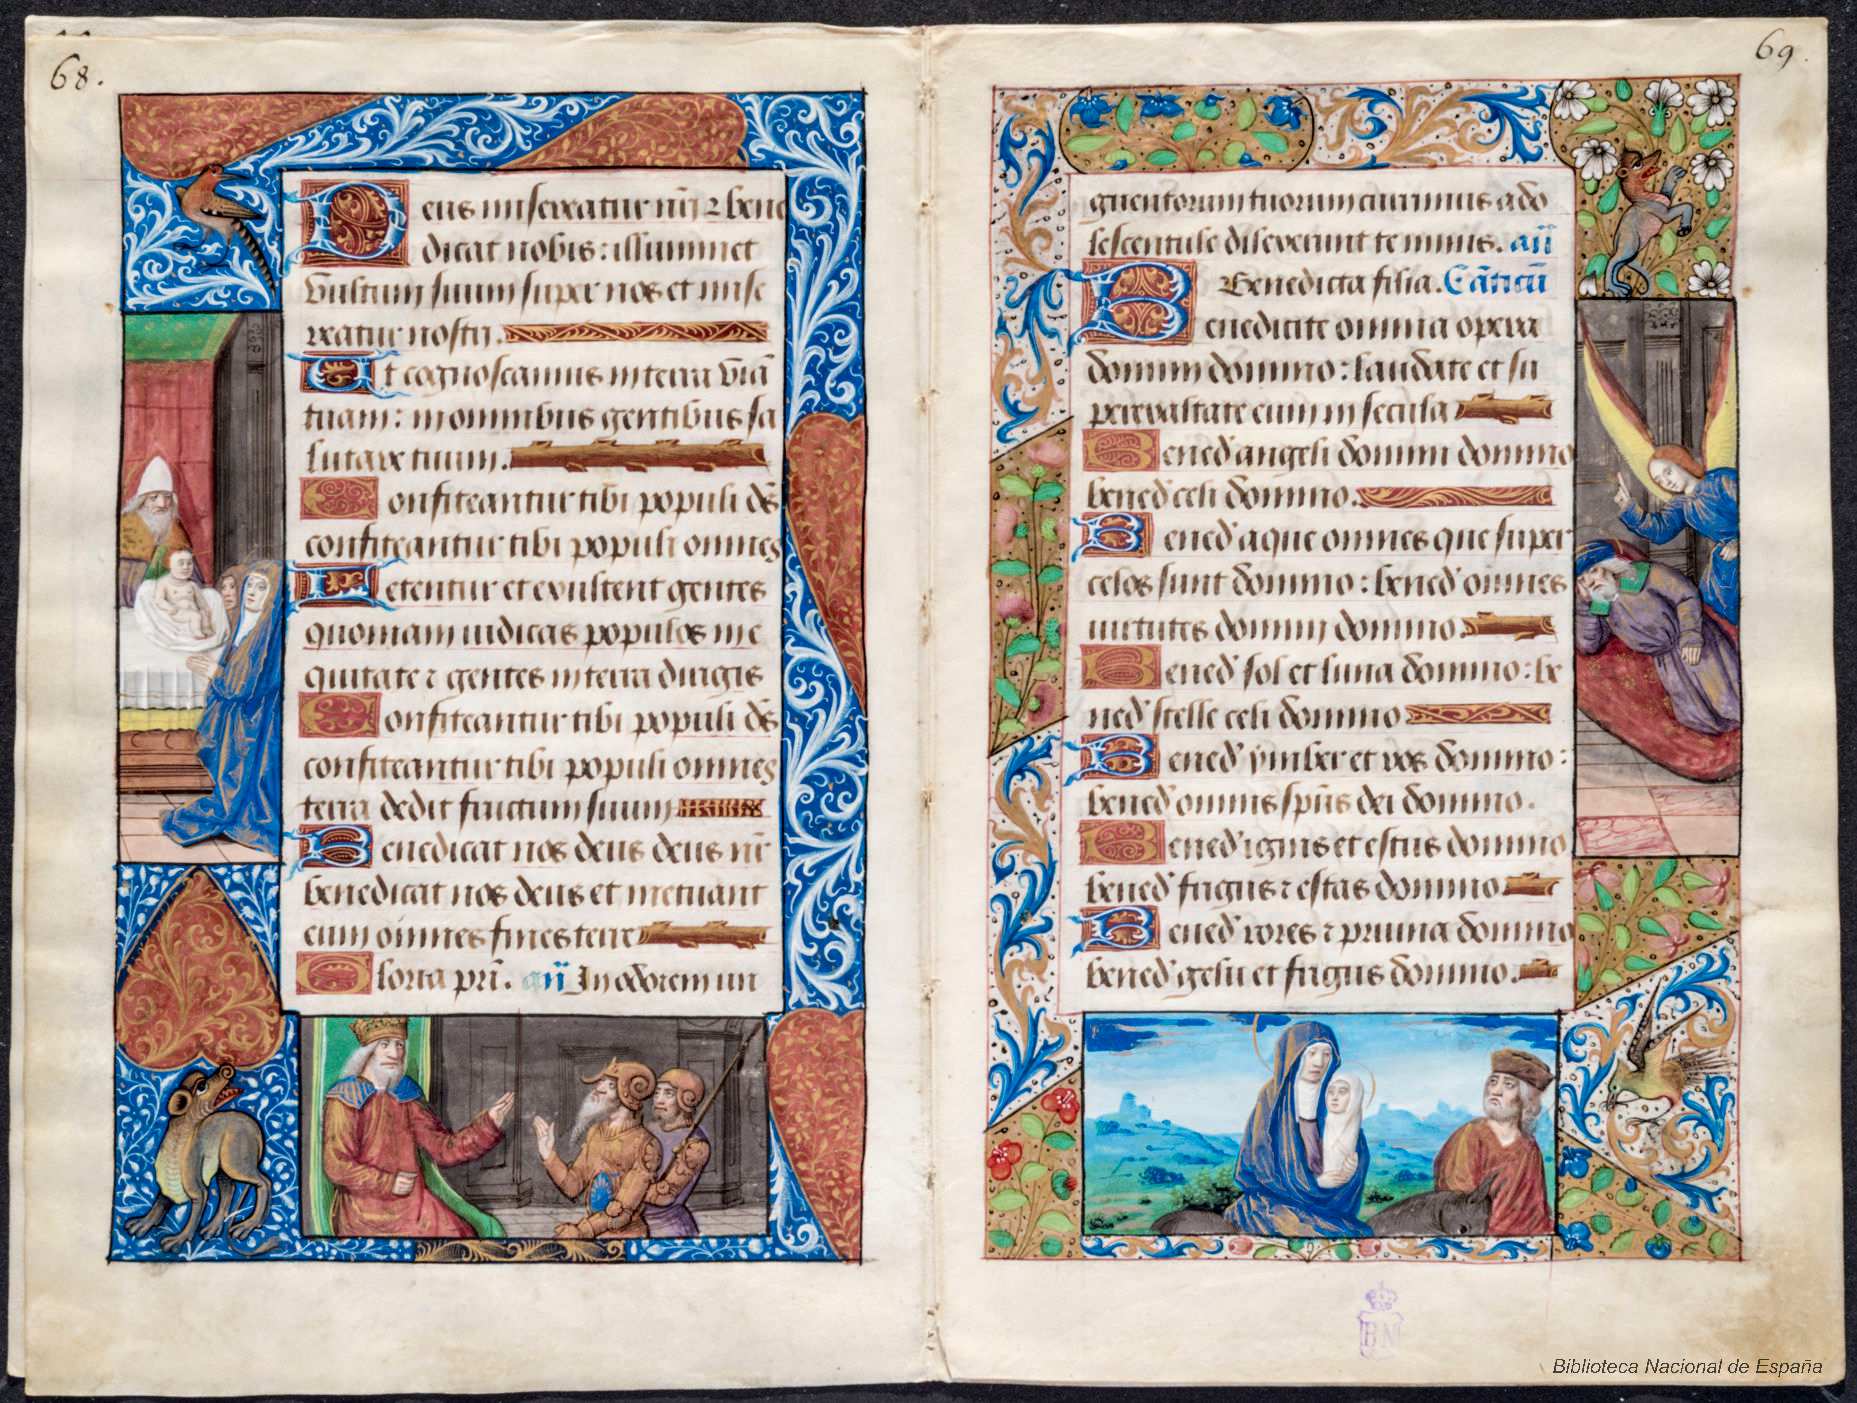 68.
Deus misereatur nr̃i ⁊ bene
dicat nobis: illuminet
vultum suum super nos et mise
reatur nostri.
Ut cognoscamus in terra viã
tuam: in omnibus gentibus sa
lutare tuum.
Confiteantur tibi populi ds̃
confiteantur tibi populi omnes
Letentur et exultent gentes
quoniam iudicas populos in e
quitate ⁊ gentes in terra dirigis
Confiteantur tibi populi ds̃
confiteantur tibi populi omnes
terra dedit fructum suum
Benedicat nos deus deus nr̃
benedicat nos deus et metuant
eum oim̃nes fines terre
Gloria pr̃i. añ In odorem un
69.
guentorum tuorum currimus ado
lescentule dilexerunt te nimis. añ
Benedicta filia. Cãticũ
Benedicite omnia opera
domini domino: laudate et su
perexaltate eum in secula
Bened' angeli domini domino
bened' celi domino.
Bened' aque omnes que super
celos sunt domino: bened' oim̃nes
uirtutes domini domino.
Bened' sol et luna domino: be
ned' stelle celi domino
Bened' ymber et ros domino:
bened' omnis sp̃us dei domino.
Bened' ignis et estus domino
bened' frigus ⁊ estas domino.
Bened' rores ⁊ pruina domino
bened' gelu et frigus domino.
BN
Biblioteca Nacional de España